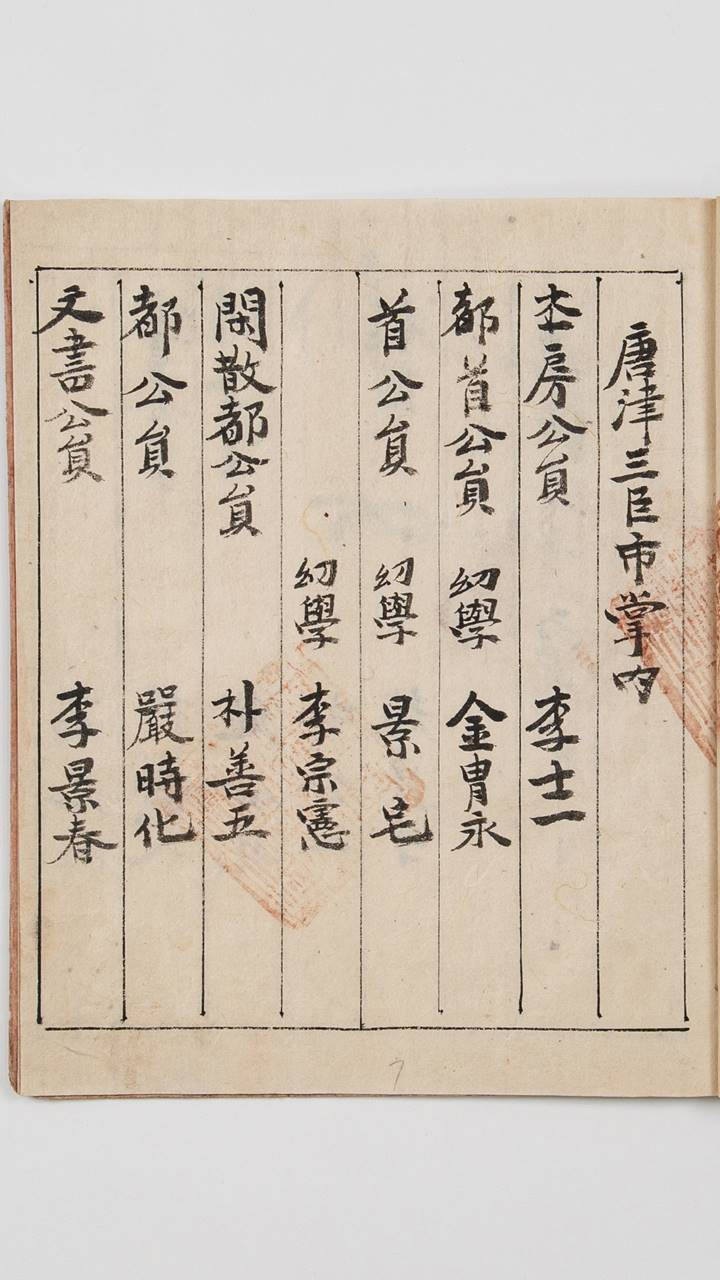 唐津三巨市掌內
本房公員 李士一
都首公員 幼學 金胄永
首公員 幼學 景宅
幼學 李宗憲
閑散都公員 朴善五
都公員 嚴時化
文書公員 李景春
7